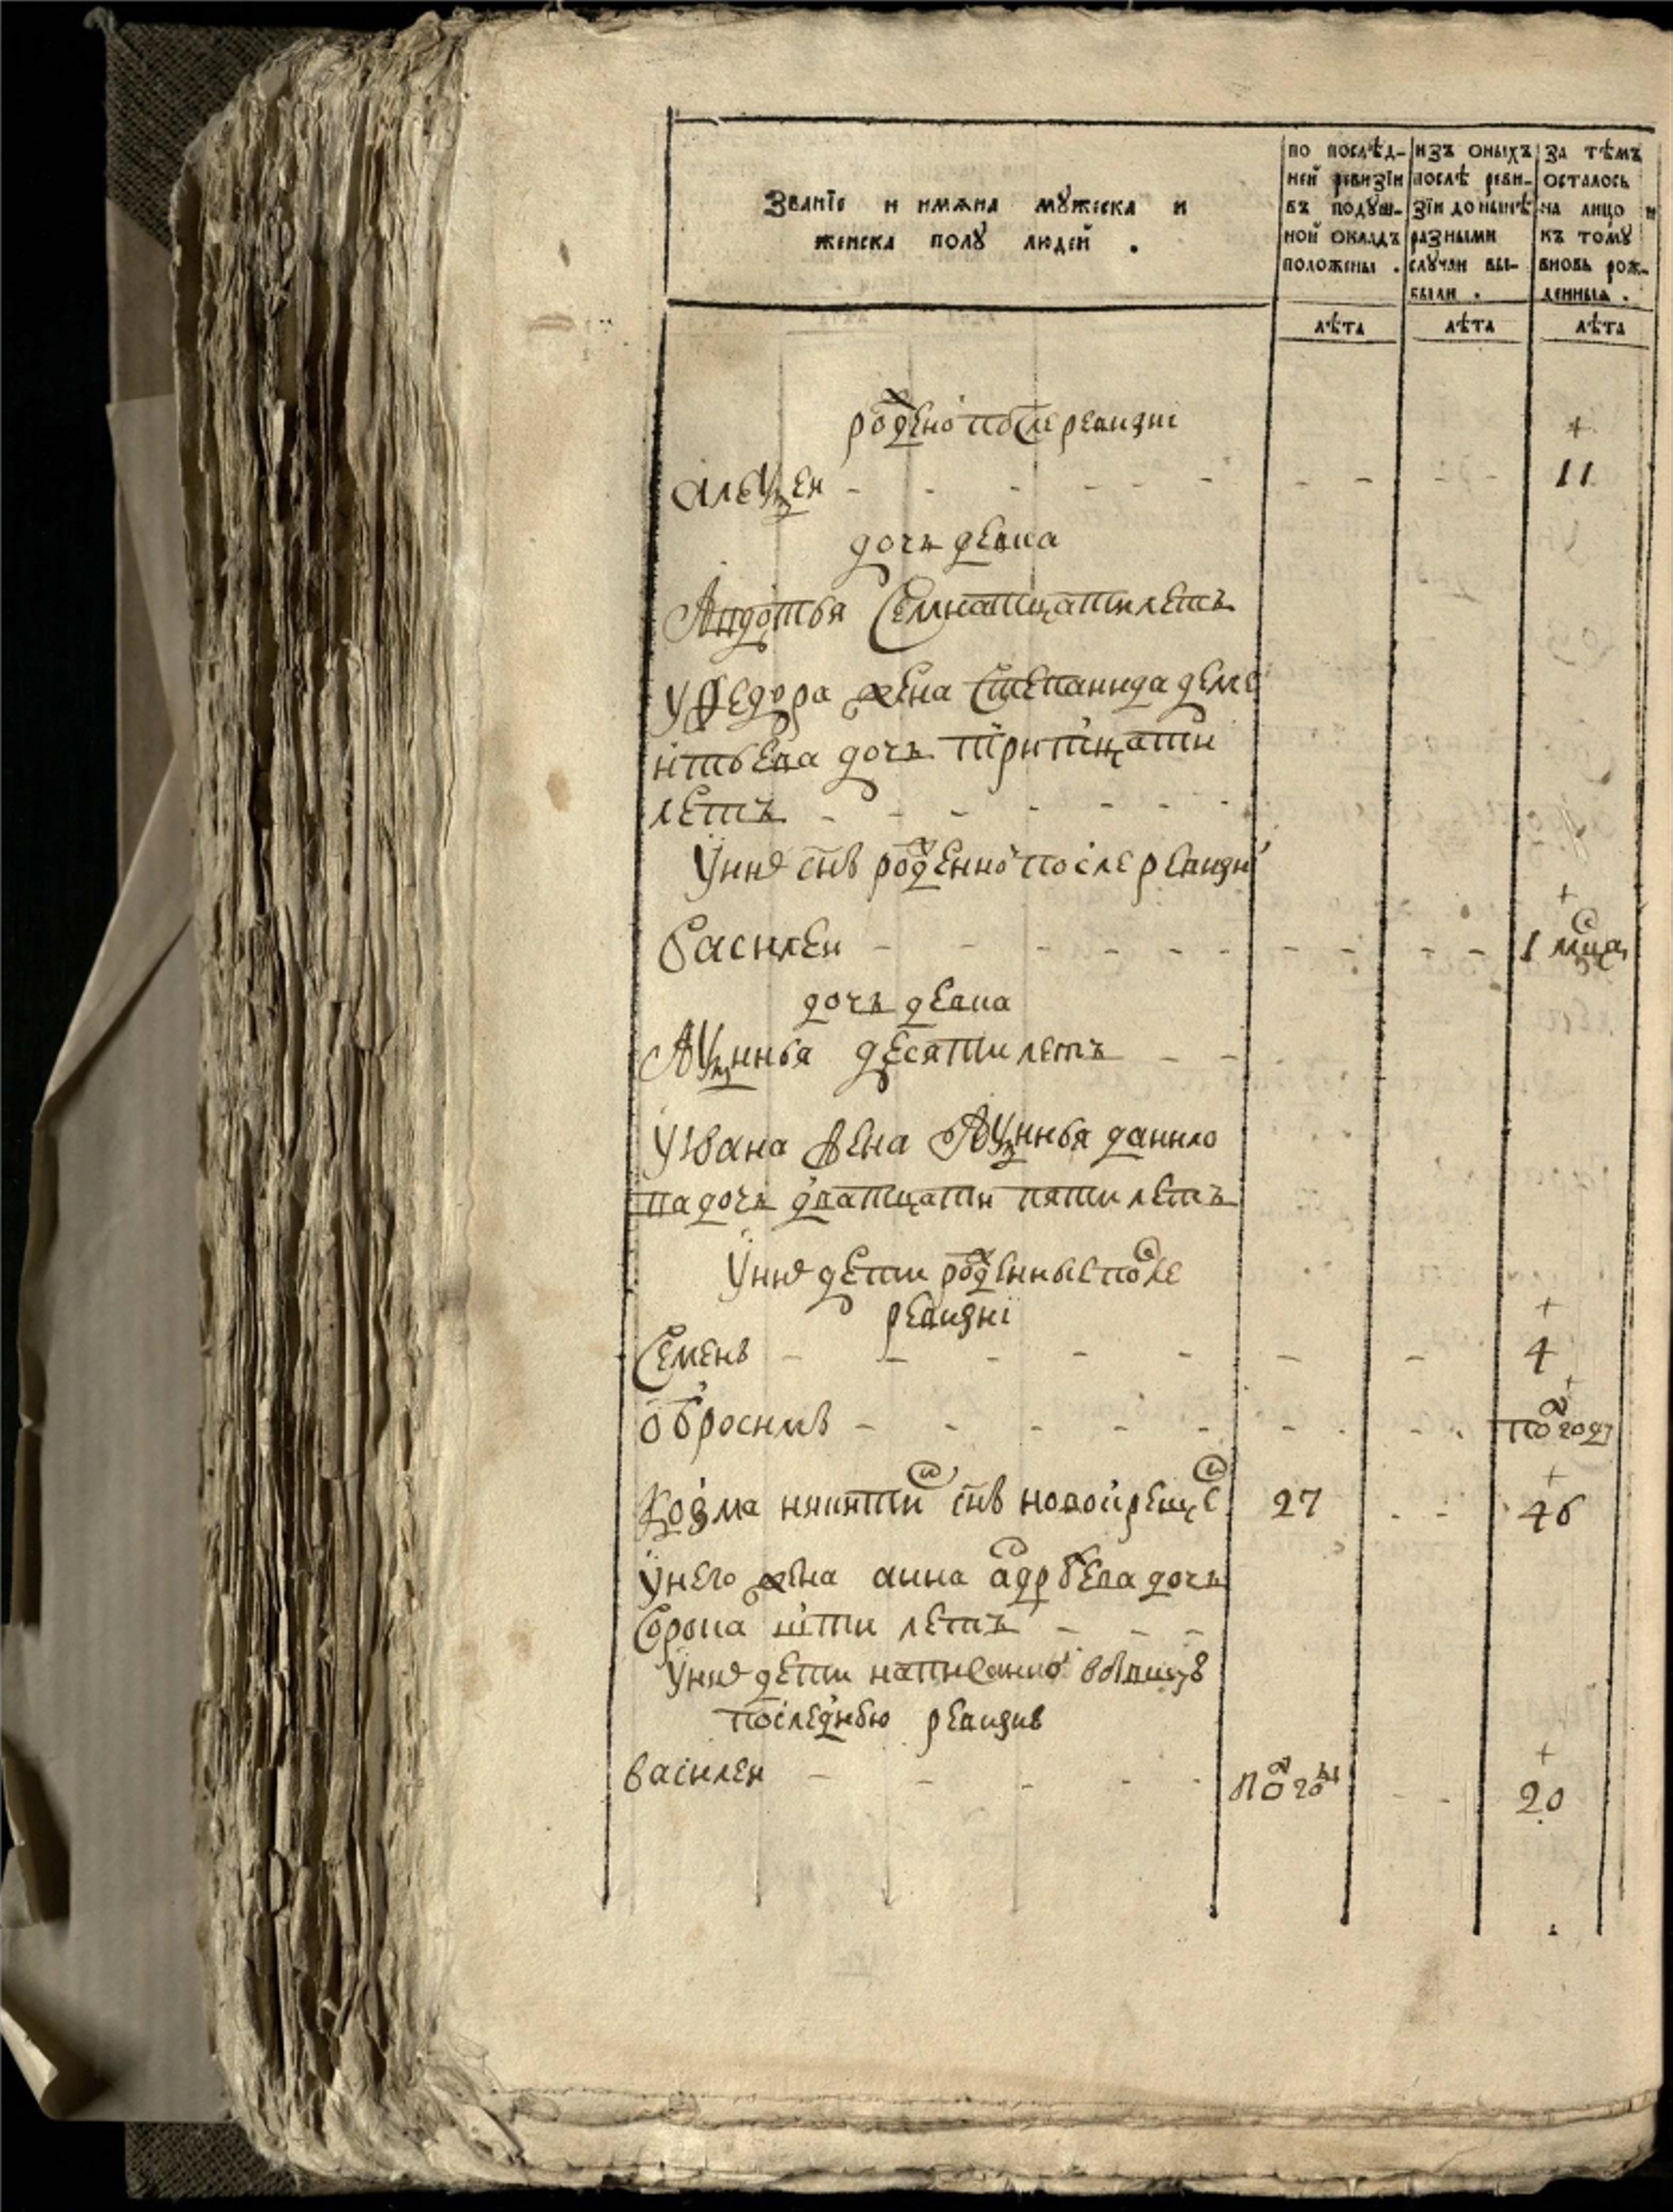 Званїе и имяна мꙋжеска и
женска полꙋ людей .
по послѣд-
ней ревизїи
въ подꙋш-
ной окладъ
положены .
изъ оныхъ
послѣ реви-
зїи до нынѣ
разными
слꙋчаи вы-
были .
за тѣмъ
осталось
на лицо и
къ тому
вновь рож-
денныя .
лѣта лѣта лѣта
рождено после ревизиі
+
алеѯеи - - - - - - - - - - 11
дочь девка
Авдотья семнатцати летъ
у Федора жена степанида деме
нтьева дочь тритцати
летъ - - - - - -
у них снъ рожденно после ревизи
+
Василеи - - - - - - - - - 1 мца
дочь девка
Аѯинья десяти летъ - -
у Ивана жена Аѯинья данило
ва дочь дватцати пяти летъ
у них дети рожденные после
ревизиі
+
Семенъ - - - - - - - 4
+
обросимъ - - - - - - - - полгода
+
Козма никитин снъ новокрещен 27 - - 46
у него жена анна андреева дочь
сорока шти летъ - - -
у них дети написанно
последнюю ревизию
+
василеи - - - - - полгода - - 20